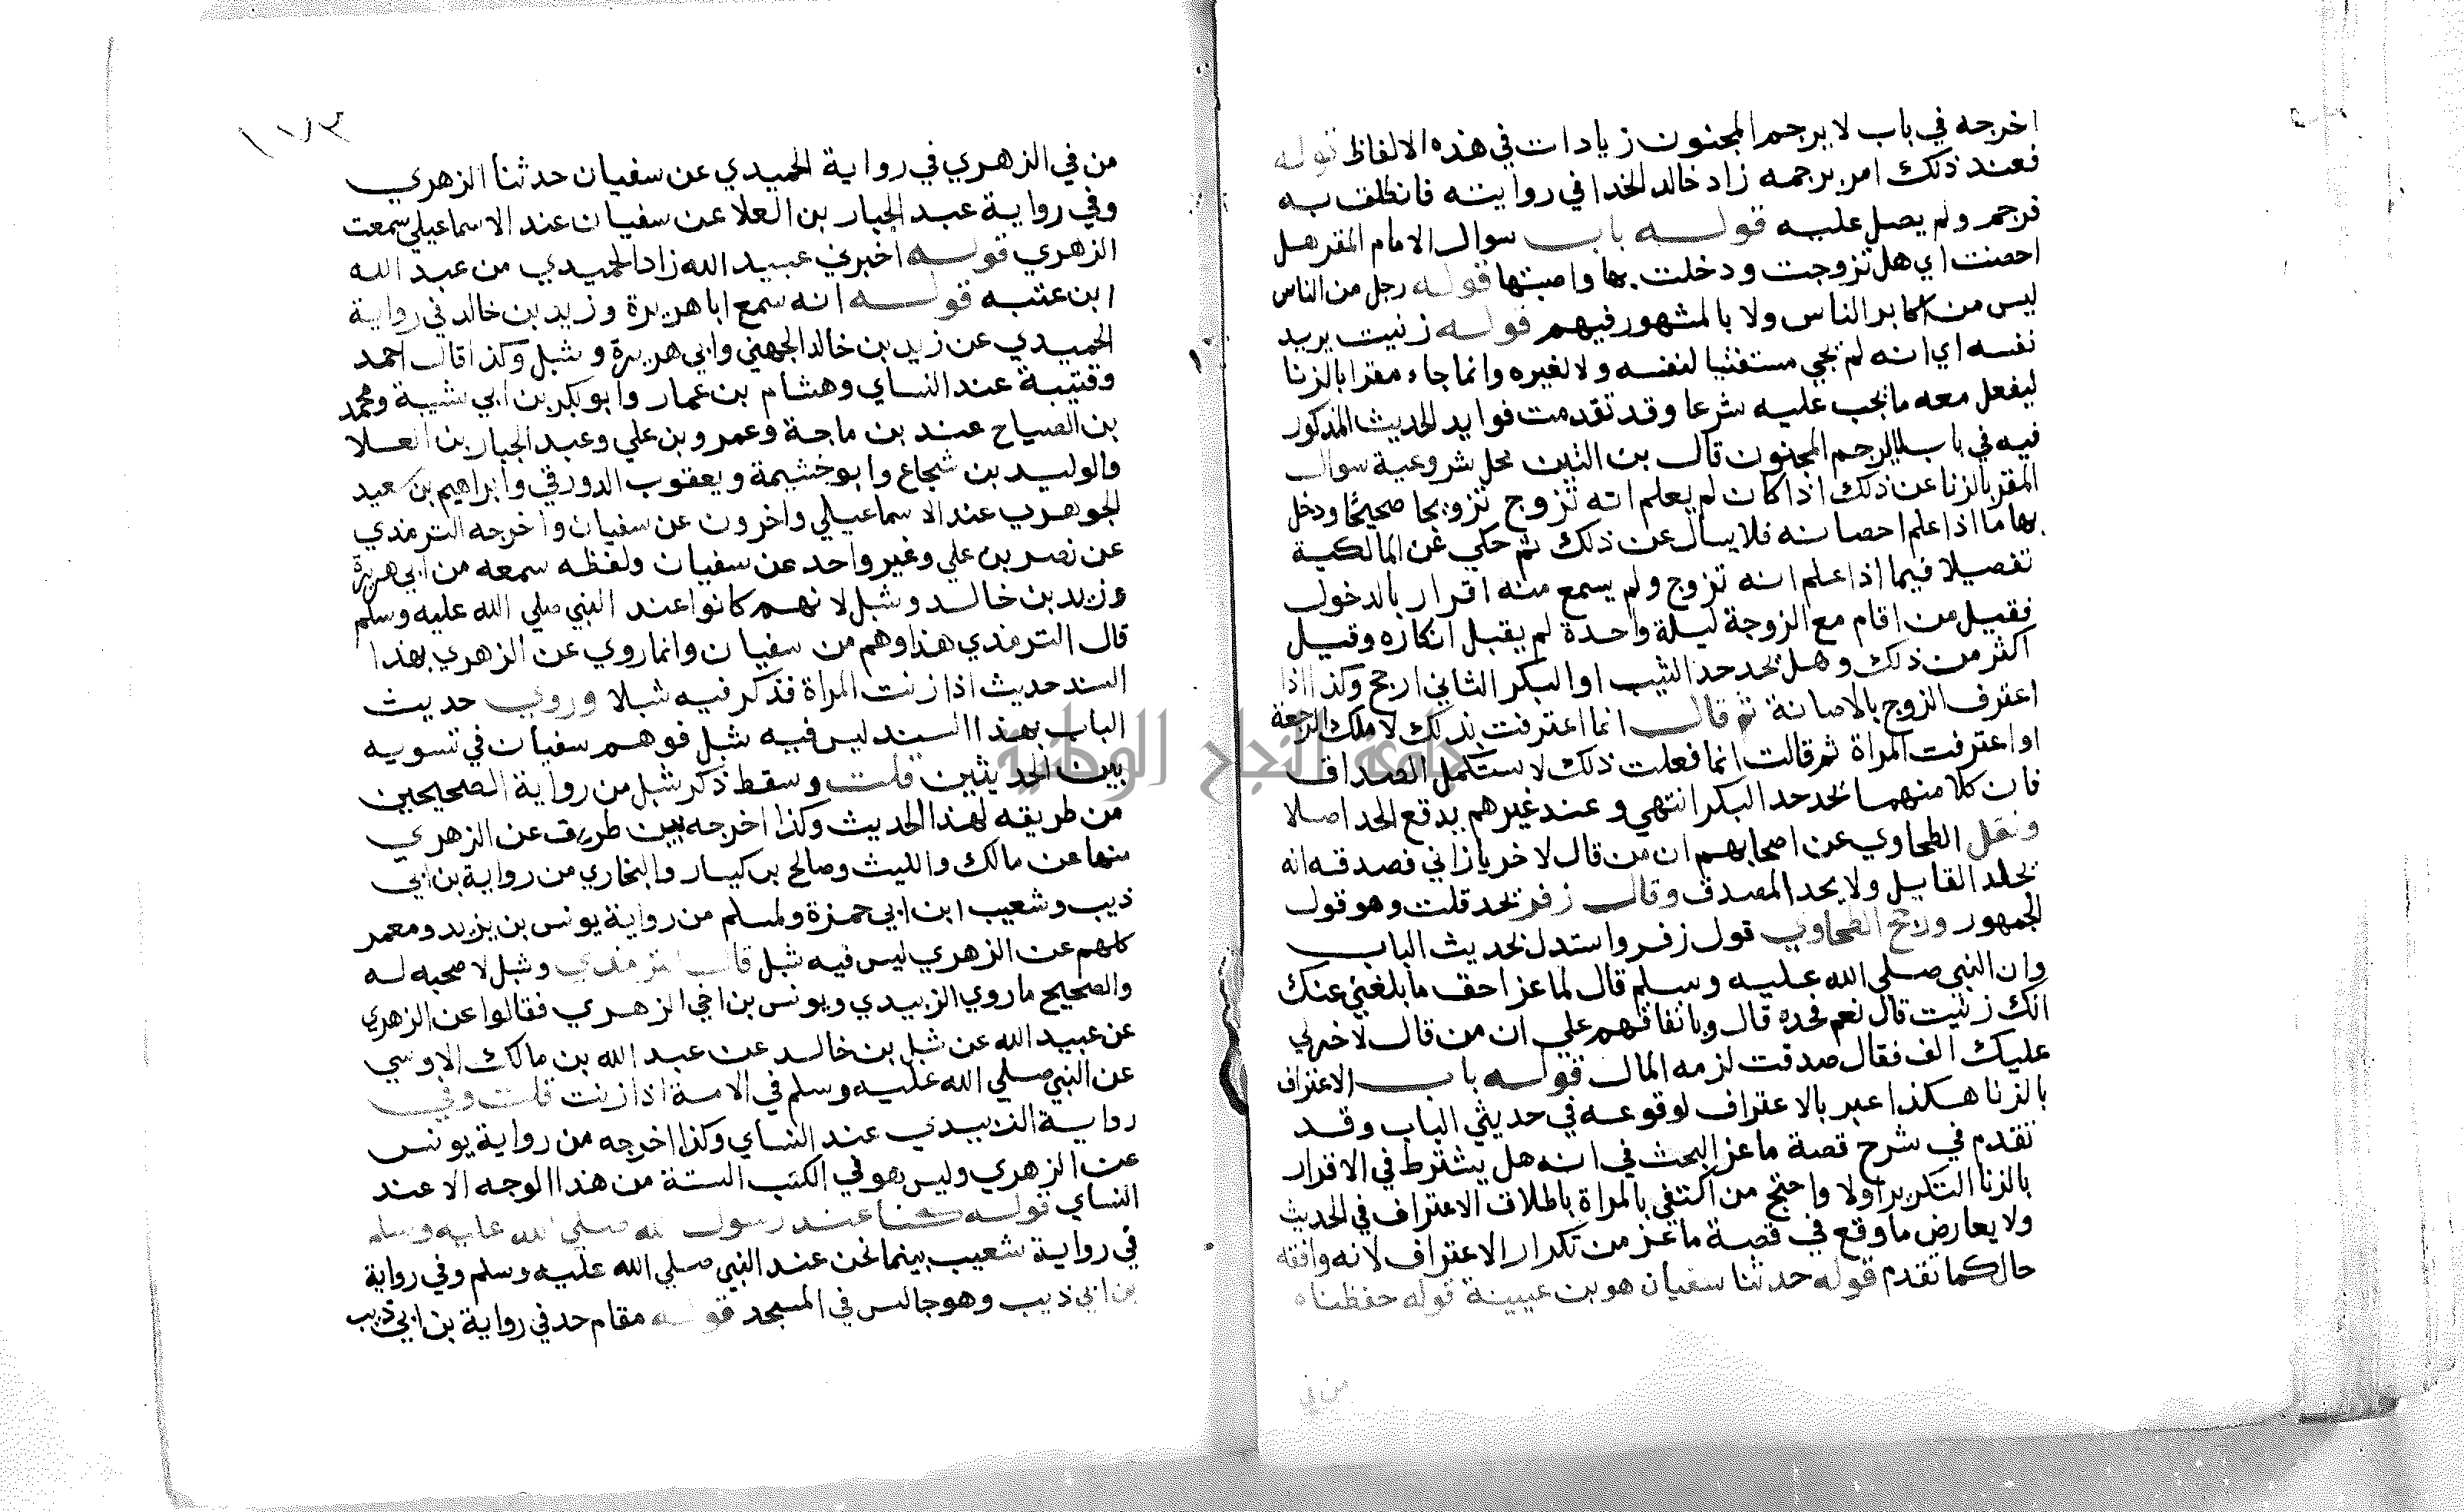 اخرجه في باب لا يرجم المجنون زيادات في هذه الالفاظ قوله
فعند ذلك امر برجمه زاد خالد الحذا في روايته فانطلق به
فرجم ولم يصل عليه قوله باب سوال الامام المقر هل
احصنت اي هل تزوجت ودخلت بها واصبتها قوله رجل من الناس
ليس من اكابر الناس ولا بالمشهور فيهم قوله زنيت يريد
نفسه اي انه لم يجي مستفتيا لنفسه ولا لغيره وانما جاء مقرا بالزنا
ليفعل معه ما يجب عليه شرعا وقد تقدمت فوايد الحديث المذكور
فيه في باب لا يرجم المجنون قال بن التين محل مشروعية سوال
المقر بالزنا عن ذلك اذا كان لم يعلم انه تزوج تزويجا صحيحا ودخل
بها ما اذا علم احصانه فلا يسال عن ذلك ثم حكي عن المالكية
تفصيلا فيما اذا علم انه تزوج ولم يسمع منه اقرار بالدخول
فقيل من اقام مع الزوجة ليلة واحدة لم يقبل انكاره وقيل
اكثر من ذلك وهل يحد حد الثيب او البكر الثاني ارجح وكذا اذا
اعترف الزوج بالاصانة ثم قال انما اعترفت بذلك لاملك الرجعة
او اعترفت المراة ثم قالت انما فعلت ذلك لاستكمل الصداق
فان كلا منهما يحد حد البكر انتهي وعند غيرهم يدفع الحد اصلا
ونقل الطحاوي عن اصحابهم ان من قال لاخر يا زاني فصدقه انه
يجلد القايل ولا يحد المصدق وقال زفر يحد قلت وهو قول
الجمهور ورجح الطحاوي قول زفر واستدل بحديث الباب
وان النبي صلي الله عليه وسلم قال لماعز احق ما بلغني عنك
انك زنيت قال نعم فحده قال وباتفاقهم علي ان من قال لاخر لي
عليك الف فقال صدقت لزمه المال قوله باب الاعتراف
بالزنا هكذا عبر بالاعتراف لوقوعه في حديثي الباب وقد
تقدم في شرح قصة ماعز البحث في انه هل يشترط في الاقرار
بالزنا التكرير اولا واحتج من اكتفي بالمراة باطلاق الاعتراف في الحديث
ولا يعارض ما وقع في قصة ماعز من تكرار الاعتراف لانه واقعه
حال كما تقدم قوله حدثنا سفيان هو بن عيينة قوله حفظناه
من في
١٧٣
من في الزهري في رواية الحميدي عن سفيان حدثنا الزهري
وفي رواية عبد الجبار بن العلا عن سفيان عند الاسماعيلي سمعت
الزهري قوله اخبرني عبيد الله زاد الحميدي من عبد الله
ابن عتبه قوله انه سمع ابا هريرة وزيد بن خالد في رواية
الحميدي عن زيد بن خالد الجهني وابي هريرة وشبل وكذا قال احمد
وقتيبة عند النساي وهشام بن عمار وابو بكر بن ابي شيبة ومحمد
بن الصباح عند بن ماجة وعمرو بن علي وعبد الجبار بن العلا
والوليد بن شجاع وابو خشيمة ويعقوب الدورقي وابراهيم بن سعيد
الجوهري عند الاسماعيلي واخرون عن سفيان واخرجه الترمذي
عن نصر بن علي وغير واحد عن سفيان ولفظه سمعه من ابي هريرة
وزيد بن خالد وشبل لانهم كانوا عند النبي صلي الله عليه وسلم
قال الترمذي هذا وهم من سفيان وانما روي عن الزهري بهذا
السند حديث اذا زنت المراة فذكر فيه شبلا وروي حديث
الباب بهذا السند ليس فيه شبل فوهم سفيان في تسويه
بين الحديثين قلت وسقط ذكر شبل من رواية الصحيحين
من طريقه لهذا الحديث وكذا اخرجه بين طريق عن الزهري
منها عن مالك والليث وصالح بن كيسار والبخاري من رواية بن ابي
ذيب وشعيب ابن ابي حمزة ولمسلم من رواية يونس بن يزيد ومعمر
كلهم عن الزهري ليس فيه شبل قال الترمذي وشبل لا صحبه له
والصحيح ما روي الزبيدي ويونس بن اخي الزهري فقالوا عن الزهري
عن عبيد الله عن شبل بن خالد عن عبد الله بن مالك الاوسي
عن النبي صلي الله عليه وسلم في الامة اذا زنت قلت وفي
رواية الزبيدي عند النساي وكذا اخرجه من رواية يونس
عن الزهري وليس هو في الكتب الستة من هذا الوجه الا عند
النساي قوله كنا عند رسول الله صلي الله عليه وسلم
في رواية شعيب بينما نحن عند النبي صلي الله عليه وسلم وفي رواية
بن ابي ذيب وهو جالس في المسجد قوله مقام حد في رواية بن ابي ذيب
جامعة النجاح الوطنية